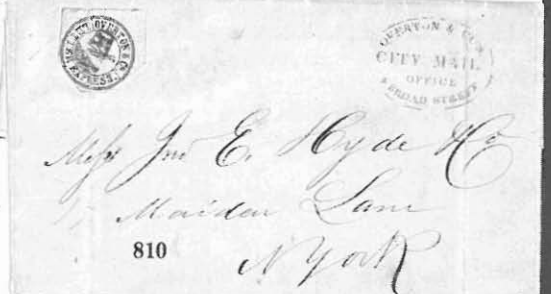 OVERTON & CO.
EXPRESS.
OVERTON & CO'S
CITY MAIL
OFFICE
BROAD STREET
Messr Jno E. Hyde & Co
Maiden Lane
N York
810